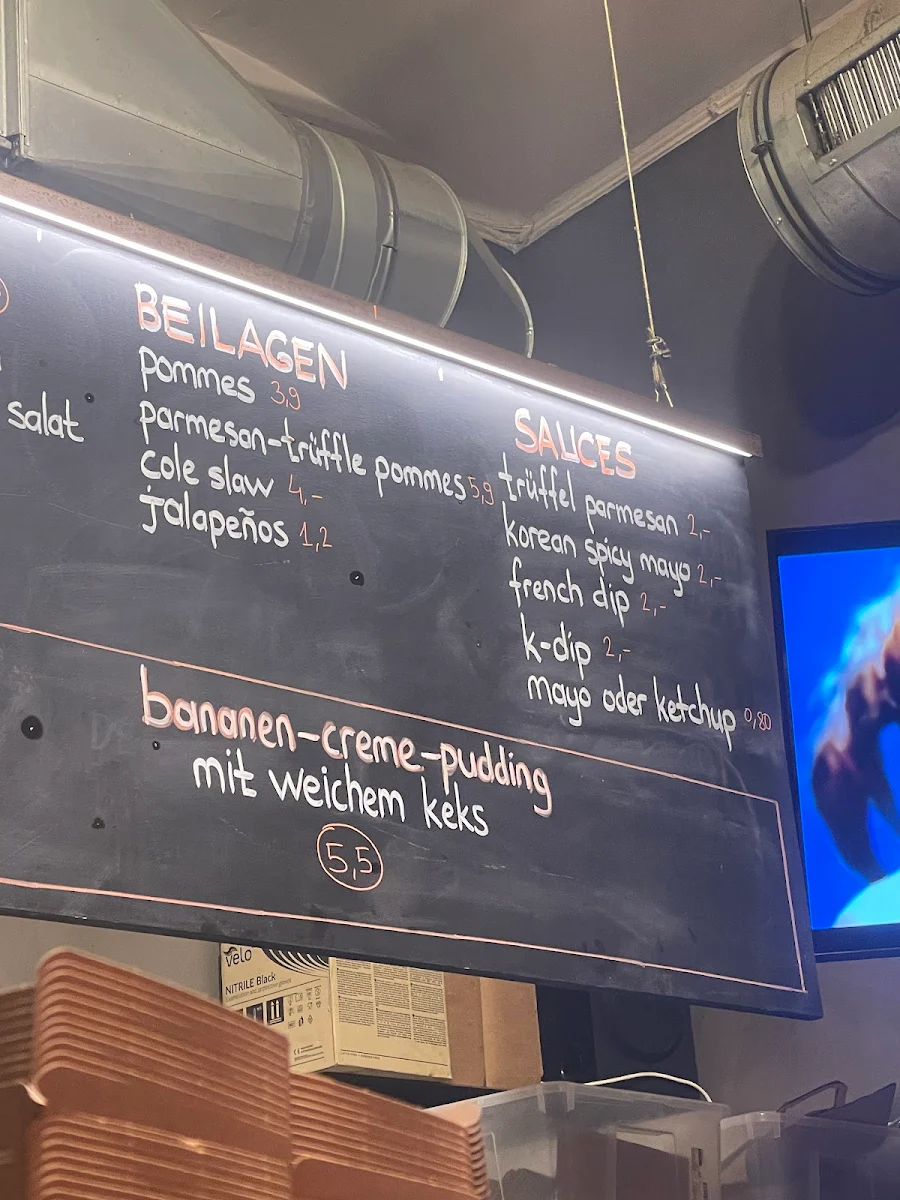 salat
BEILAGEN
pommes 3,9
parmesan-trüffle pommes 5,9
cole slaw 4,-
jalapeños 1,2
SAUCES
trüffel parmesan 2,-
korean spicy mayo 2,-
french dip 2,-
k-dip 2,-
mayo oder ketchup 0,80
bananen-creme-pudding
mit weichem keks
5,5
velo
NITRILE Black